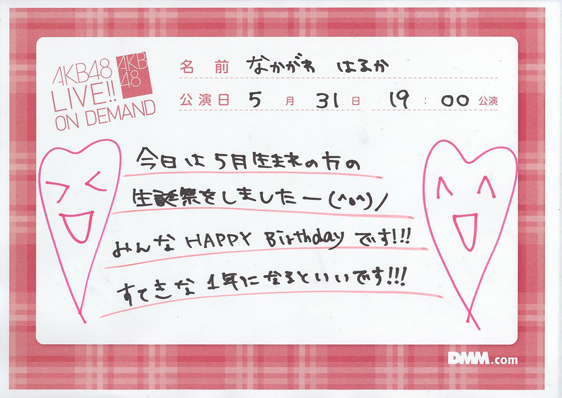 AKB48
LIVE!!
ON DEMAND
AKB
48
名前 なかがわ はるか
公演日 5月 31日 19:00公演
今日は5月生まれの方の
生誕祭をしましたー(^o^)/
みんなHAPPY Birthdayです!!!
すてきな1年になるといいです!!!
DMM.com